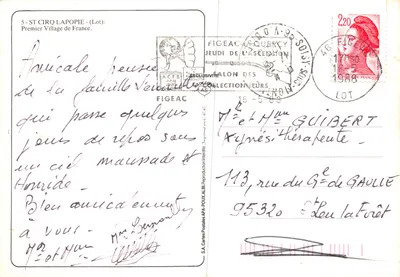 5 - ST CIRQ LAPOPIE - (Lot):
Premier Village de France.
Amicale pensée
de la famille
qui passe quelques
jours de repos sous
un ciel maussade et
Bien amicalement
à vous.
Mr et Mme
FIGEAC - QUERCY
JEUDI DE L'ASCENSION
SALON DES
COLLECTIONNEURS
FIGEAC
46 FIGEAC
1988
LOT
2,20
Mr et Mme GUIBERT
Kynésithérapeute.
113, rue du Gé de GAULLE
95320 St Leu la Forêt